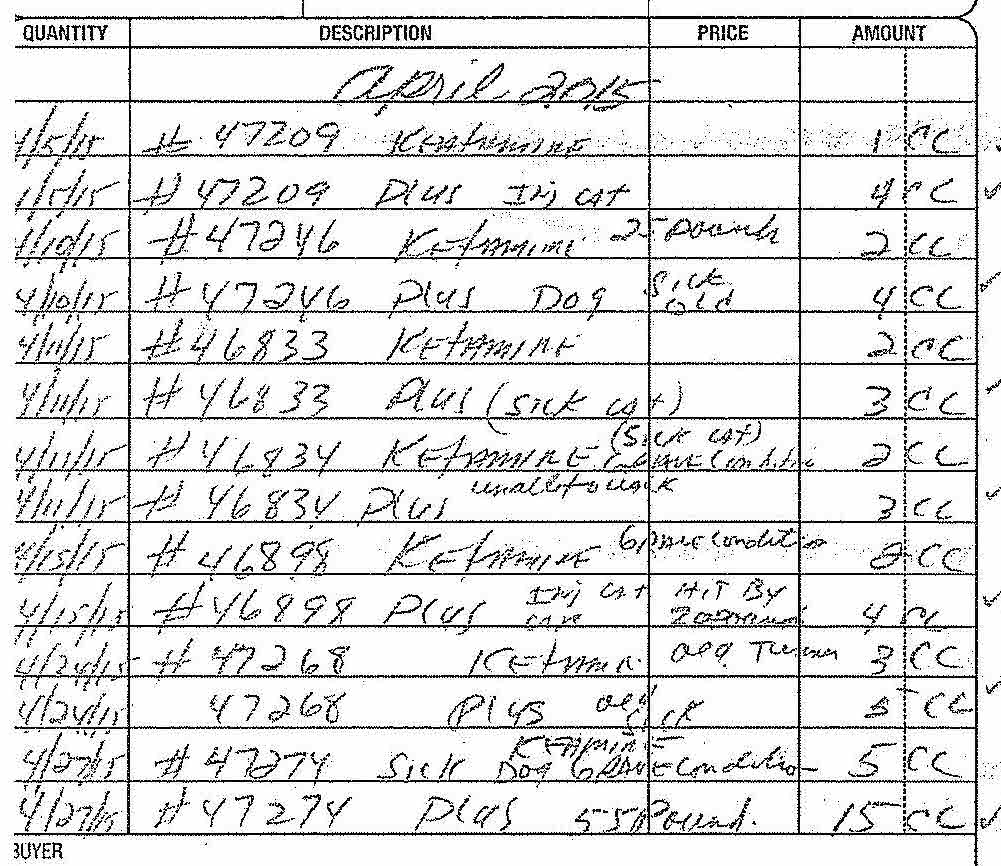 QUANTITY DESCRIPTION PRICE AMOUNT
April 2015
4/5/15 # 47209 Keatamine 1 CC
4/5/15 # 47209 Plus Inj cat 4 CC
4/10/15 # 47246 Ketamine 25 pounds 2 CC
4/10/15 # 47246 Plus Dog Sick old 4 CC
4/11/15 # 46833 Ketamine 2 CC
4/11/15 # 46833 Plus (Sick cat) 3 CC
4/11/15 # 46834 Ketamine (Sick cat) Grave Condition 2 CC
4/11/15 # 46834 Plus unable to walk 3 CC
4/15/15 # 46898 Ketamine Grave Condition 2 CC
4/15/15 # 46898 Plus Inj cat Hit By car 4 CC
4/24/15 # 47268 Ketamine old 3 CC
4/24/15 47268 Plus old 5 CC
4/27/15 # 47274 Sick Dog Ketamine Grave condition 5 CC
4/27/15 # 47274 Plus 55 Pound. 15 CC
BUYER